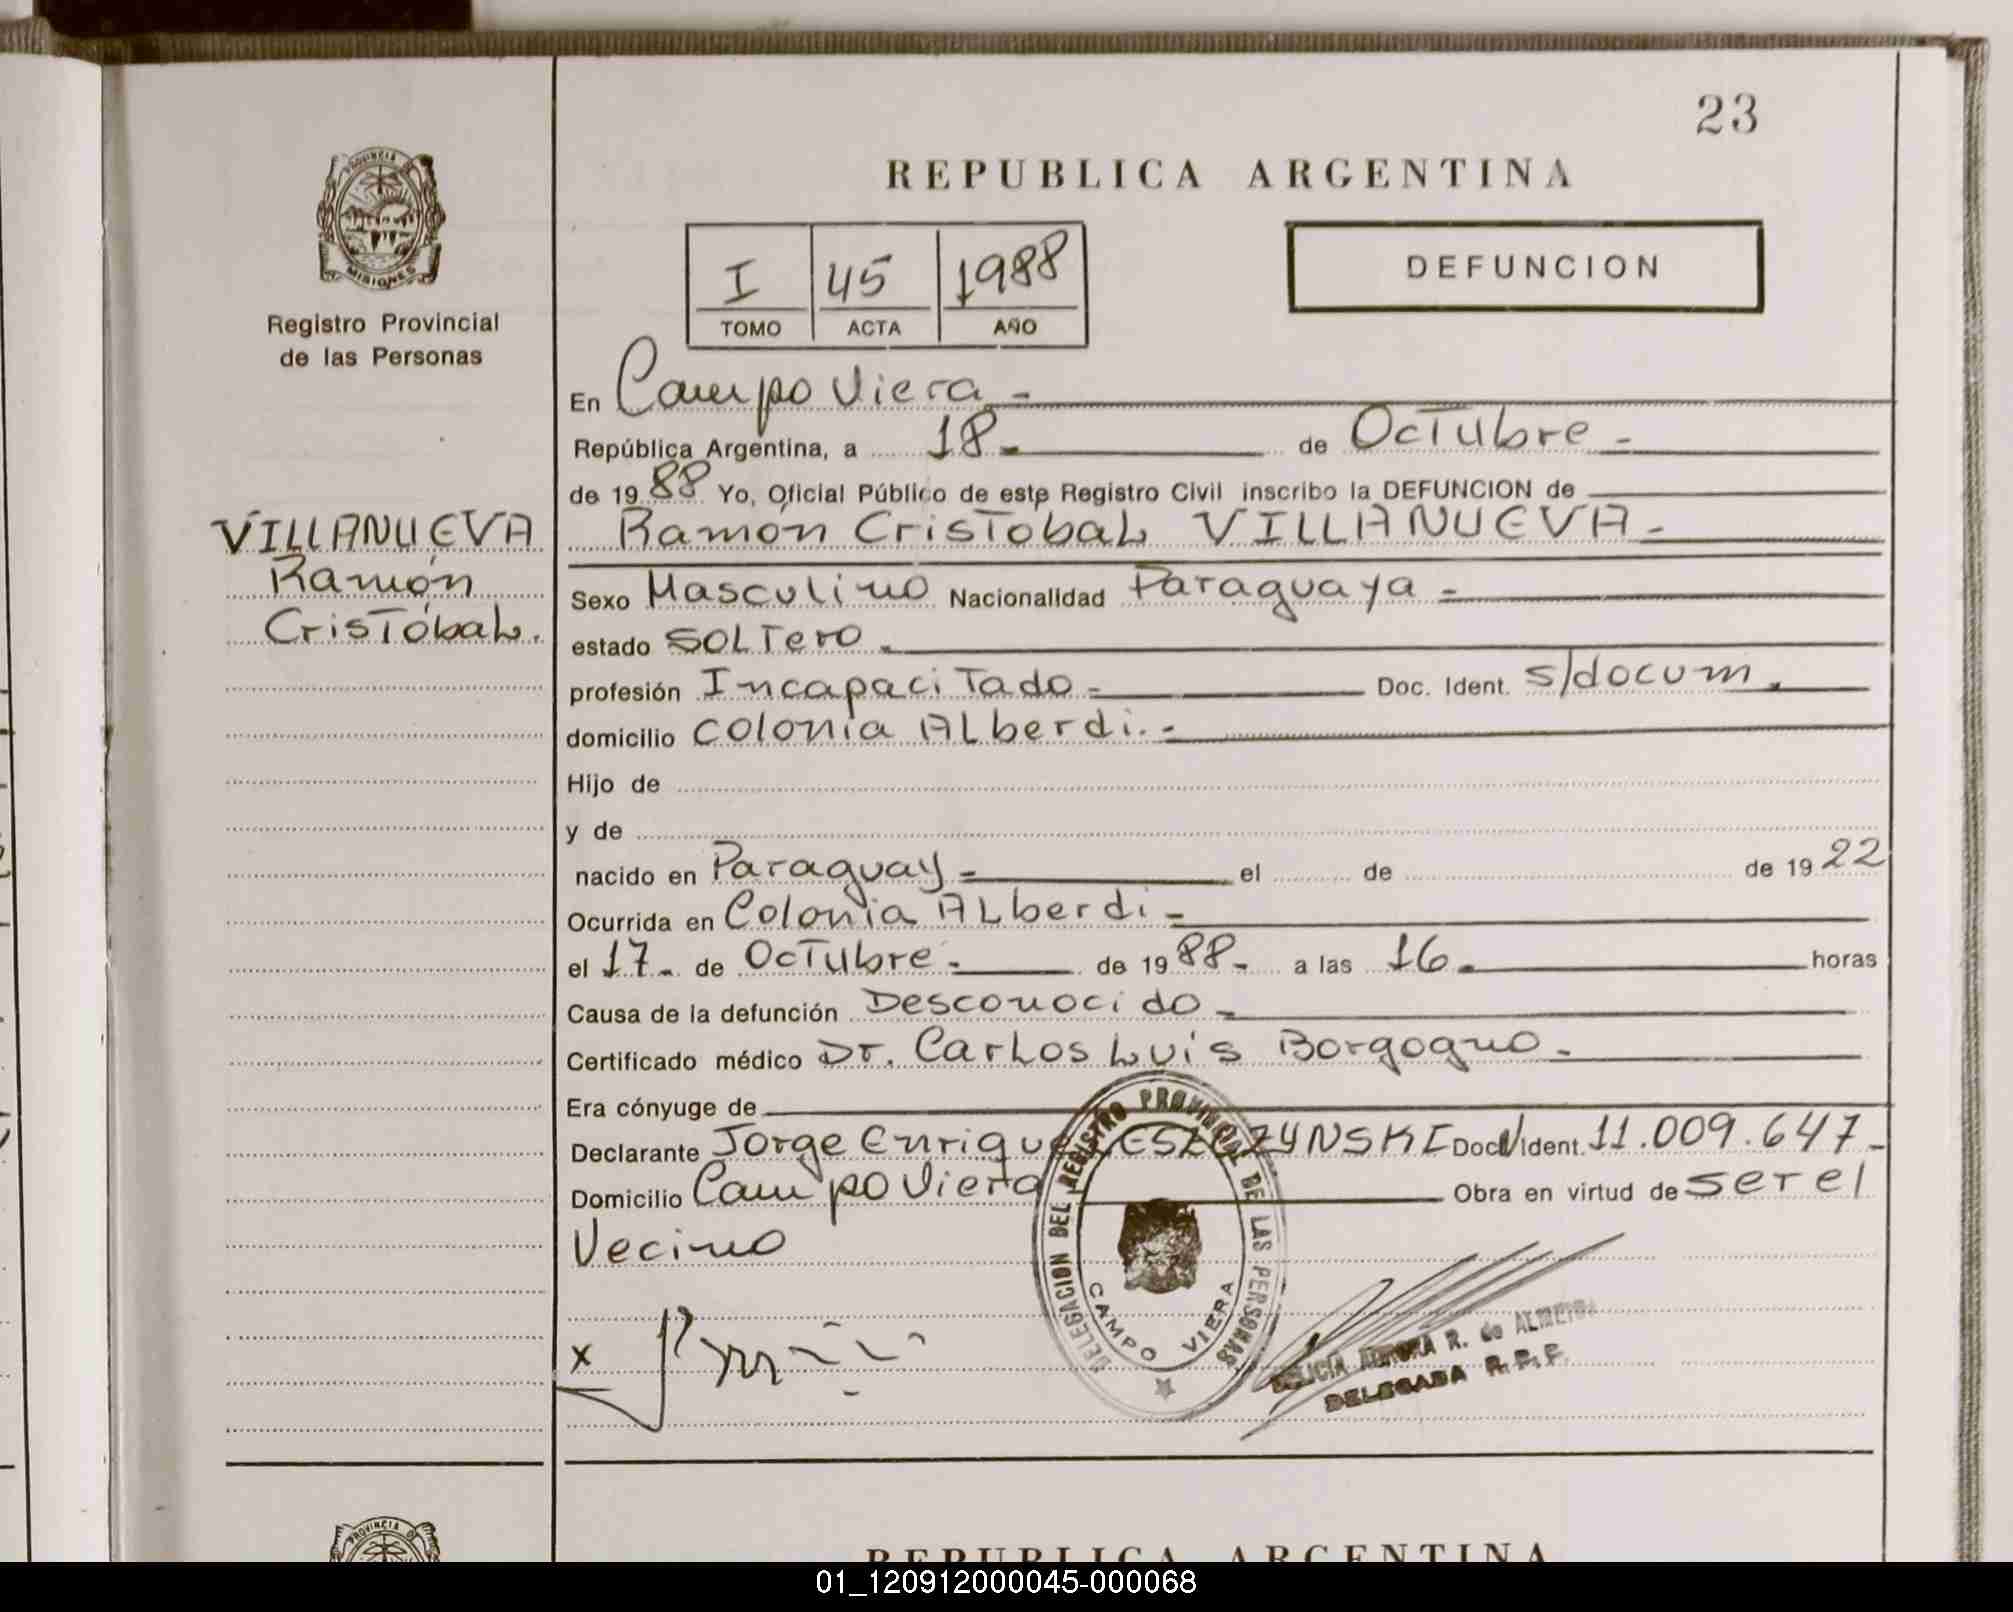 23
REPUBLICA ARGENTINA
PROVINCIA DE
MISIONES
Registro Provincial
de las Personas
I 45 1988
TOMO ACTA AÑO
DEFUNCION
En Campo Viera -
República Argentina, a 18 - de Octubre -
de 1988 Yo, Oficial Público de este Registro Civil inscribo la DEFUNCION de
Ramón Cristobal VILLANUEVA -
VILLANUEVA
Ramón
Cristóbal.
Sexo Masculino Nacionalidad Paraguaya -
estado Soltero -
profesión Incapacitado - Doc. Ident. s/docum.
domicilio Colonia Alberdi. -
Hijo de
y de
nacido en Paraguay - el de de 1922
Ocurrida en Colonia Alberdi -
el 17 - de Octubre - de 1988 - a las 16 - horas
Causa de la defunción Desconocido -
Certificado médico Dr. Carlos Luis Borgogno -
Era cónyuge de
Declarante Jorge Enrique Doc. Ident. 11.009.647 -
Domicilio Campo Viera Obra en virtud de ser el
Vecino
DELEGACION DEL REGISTRO PROVINCIAL DE LAS PERSONAS
CAMPO VIERA
x
R. de ALMEIDA
DELEGADA R. P. P.
PROVINCIA DE
REPUBLICA ARGENTINA
01_120912000045-000068